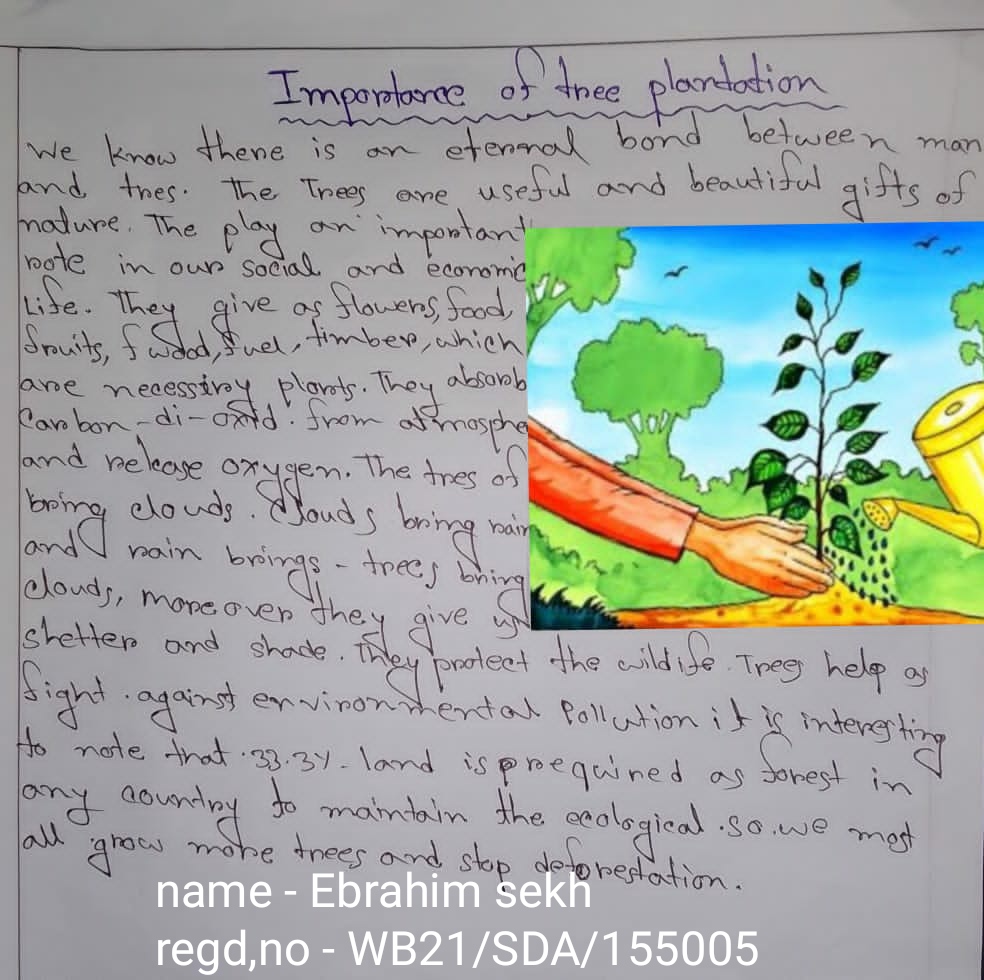 Importance of tree plantation
We know there is an eternal bond between man
and tres. The Trees are useful and beautiful gifts of
nature. The play an important
role in our social and economic
Life. They give as flowers, food,
fruits, f wood, fuel, timber, which
are necessiry plants. They absorb
Carbon-di-oxid. from atmosphe
and release oxygen. The tres of
bring clouds. Clouds bring rain
and rain brings - trees bring
clouds, more over they give us
shetter and shade. They protect the wildife. Trees help as
fight. against environmental Pollution it is interesting
to note that 33.3%. land is prequired as forest in
any country to maintain the ecological. so. we most
all grow more trees and stop deforestation.
name - Ebrahim sekh
regd,no - WB21/SDA/155005